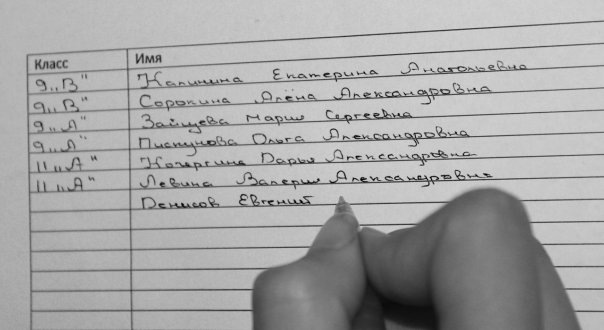 Класс Имя
9„В" Калинина Екатерина Анатольевна
9„В" Сорокина Алёна Александровна
9„А" Зайцева Мария Сергеевна
9„А" Пискунова Ольга Александровна
11„А" Кочергина Дарья Александровна
11„А" Левина Валерия Александровна
Денисов Евгений